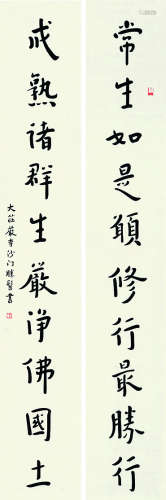 常生如是願修行最勝行
成熟諸群生嚴淨佛國土
大莊嚴寺沙門勝髻書